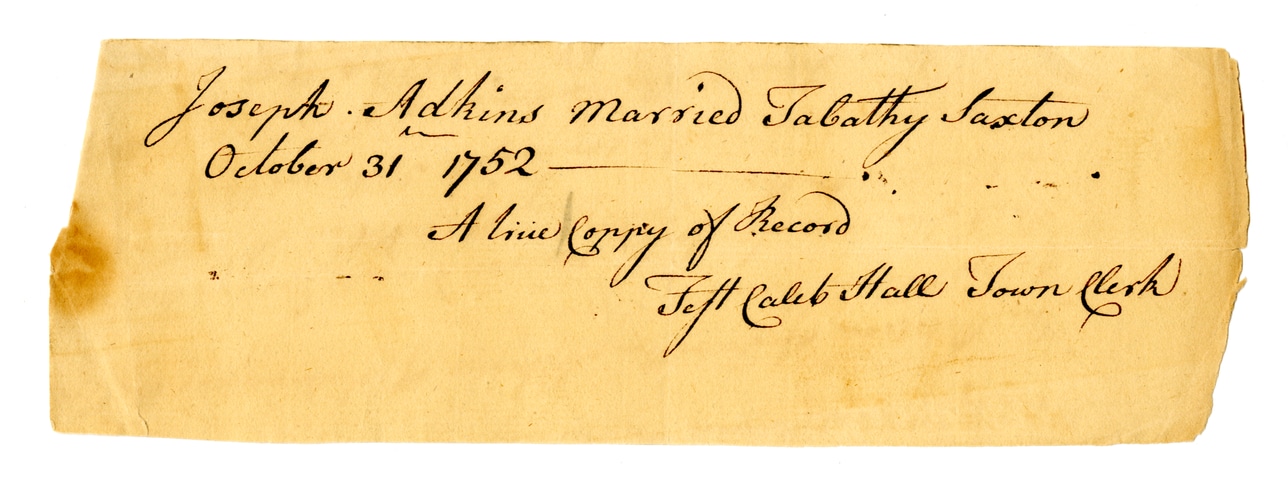 Joseph. Adkins Married Tabathy Saxton
October 31 1752
A true Coppy of Record
Test Caleb Hall Town Clerk